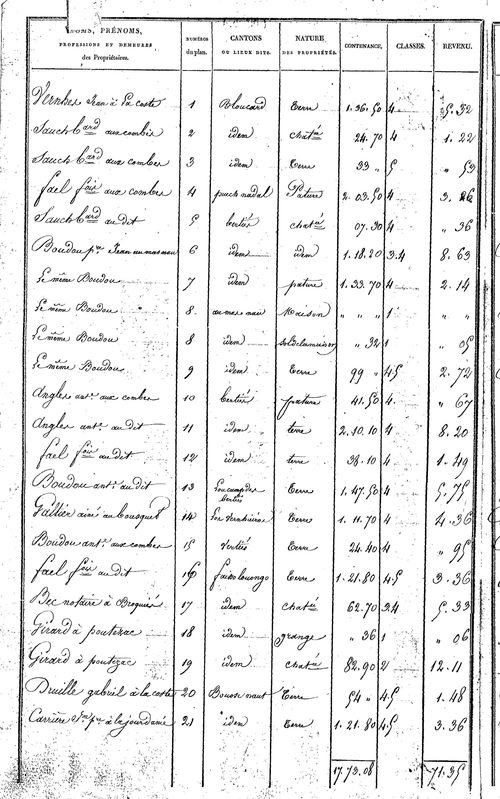 NOMS, PRÉNOMS, PROFESSIONS ET DEMEURES des Propriétaires. NUMÉROS du plan. CANTONS OU LIEUX DITS. NATURE DES PROPRIÉTÉS. CONTENANCE. CLASSES. REVENU.
Vernhes Jean à La coste 1 Bloucard Terre 1.36.50 4 5.32
Sauch bard aux combes 2 idem chatée 24.70 4 1.22
Sauch bard aux combes 3 idem Terre 33 " 5 " 53
fael fois aux combes 4 puech nadal Pature 2.03.50 4 3.26
Sauch bard au dit 5 bertié chatée 07.30 4 " 36
Boudou pre Jean au mas nau 6 idem idem 1.18.20 3.4 8.63
Le même Boudou 7 idem pature 1.33.70 4 2.14
Le même Boudou " 8 au mas nau Maison " " " 1 " "
Le même Boudou 8 idem Sol de la maison " 32 1 " 05
Le même Boudou 9 idem Terre 99 " 4.5 2.72
Angles ant. aux combes 10 bertiés pature 41.50 4 " 67
Angles ant. au dit 11 idem terre 2.10.10 4 8.20
fael fois au dit 12 idem terre 38.10 4 1.49
Boudou ant. au dit 13 Lou camp des bertiés Terre 1.47.50 4 5.75
Gallier ainé au bousquet 14 Les Vernhieires Terre 1.11.70 4 4.36
Boudou ant. aux combes 15 Vertiés Terre 24.40 4 " 95
fael fois au dit 16 faisso louongo Terre 1.21.80 4.5 3.36
Bec notaire à Broquiés 17 idem chatée 62.70 3.4 5.33
Girard à poutezac 18 idem grange " 36 1 " 06
Girard à poutezac 19 idem chatée 82.90 2 12.11
Druille gabriel à la coste 20 Bousse naut Terre 54 " 4.5 1.48
Carrière Jn pre à la jourdanié 21 idem Terre 1.21.80 4.5 3.36
17.73.08 71.35